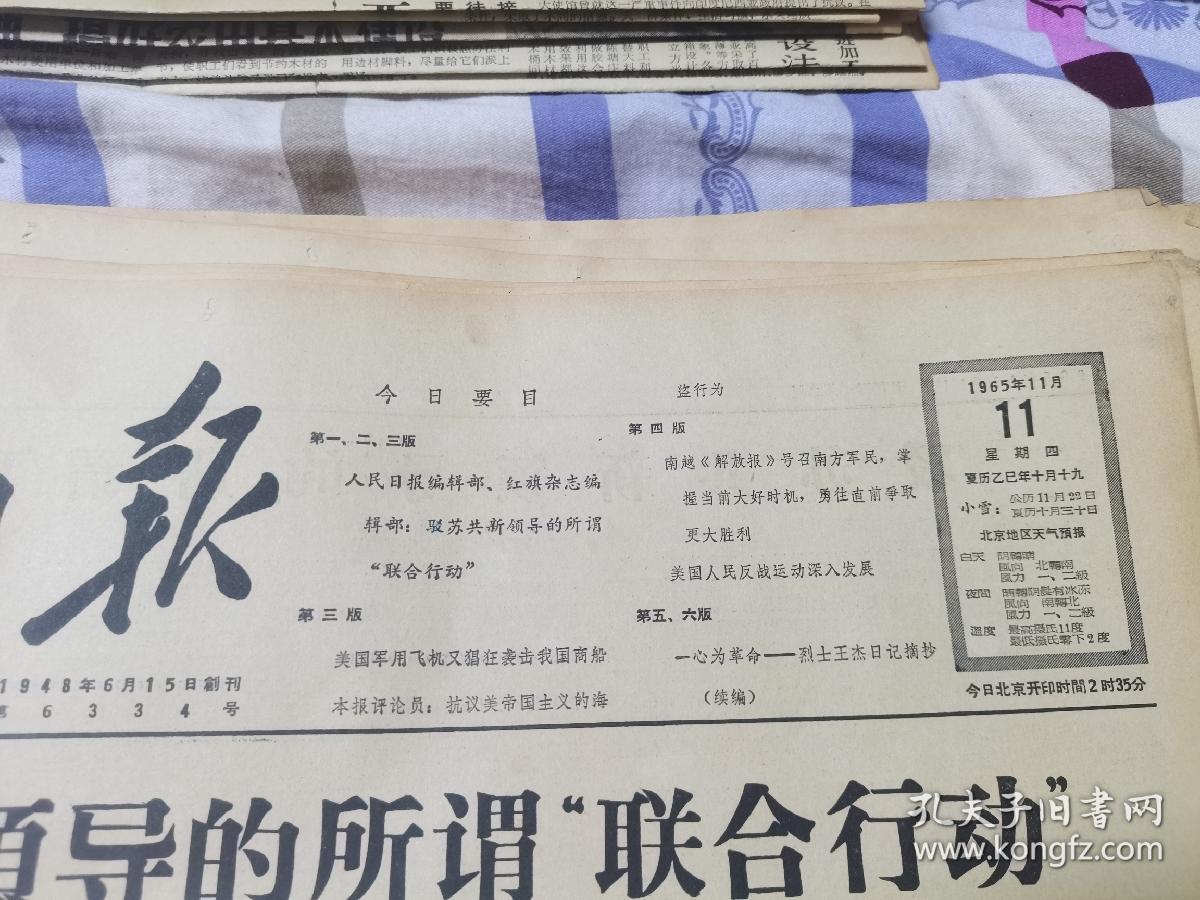 要待接
书，使职工们看到节约木材的
用边材脚料，尽量给它们派上
设法
报
今日要目
第一、二、三版
人民日报编辑部、红旗杂志编
辑部：驳苏共新领导的所谓
“联合行动”
第三版
美国军用飞机又猖狂袭击我国商船
本报评论员：抗议美帝国主义的海
盗行为
第四版
南越《解放报》号召南方军民，掌
握当前大好时机，勇往直前爭取
更大胜利
美国人民反战运动深入发展
第五、六版
一心为革命——烈士王杰日记摘抄
（续编）
1965年11月
11
星期四
夏历乙巳年十月十九
小雪：公历11月22日
夏历十月三十日
北京地区天气預报
白天 阴轉晴
風向 北轉南
風力 一、二級
夜間 晴轉阴晨有冰冻
風向 南轉北
風力 一、二級
溫度 最高摄氏11度
最低摄氏零下2度
今日北京开印时間2时35分
1948年6月15日創刊
第6334号
领导的所谓“联合行动”
孔夫子旧书网
www.kongfz.com